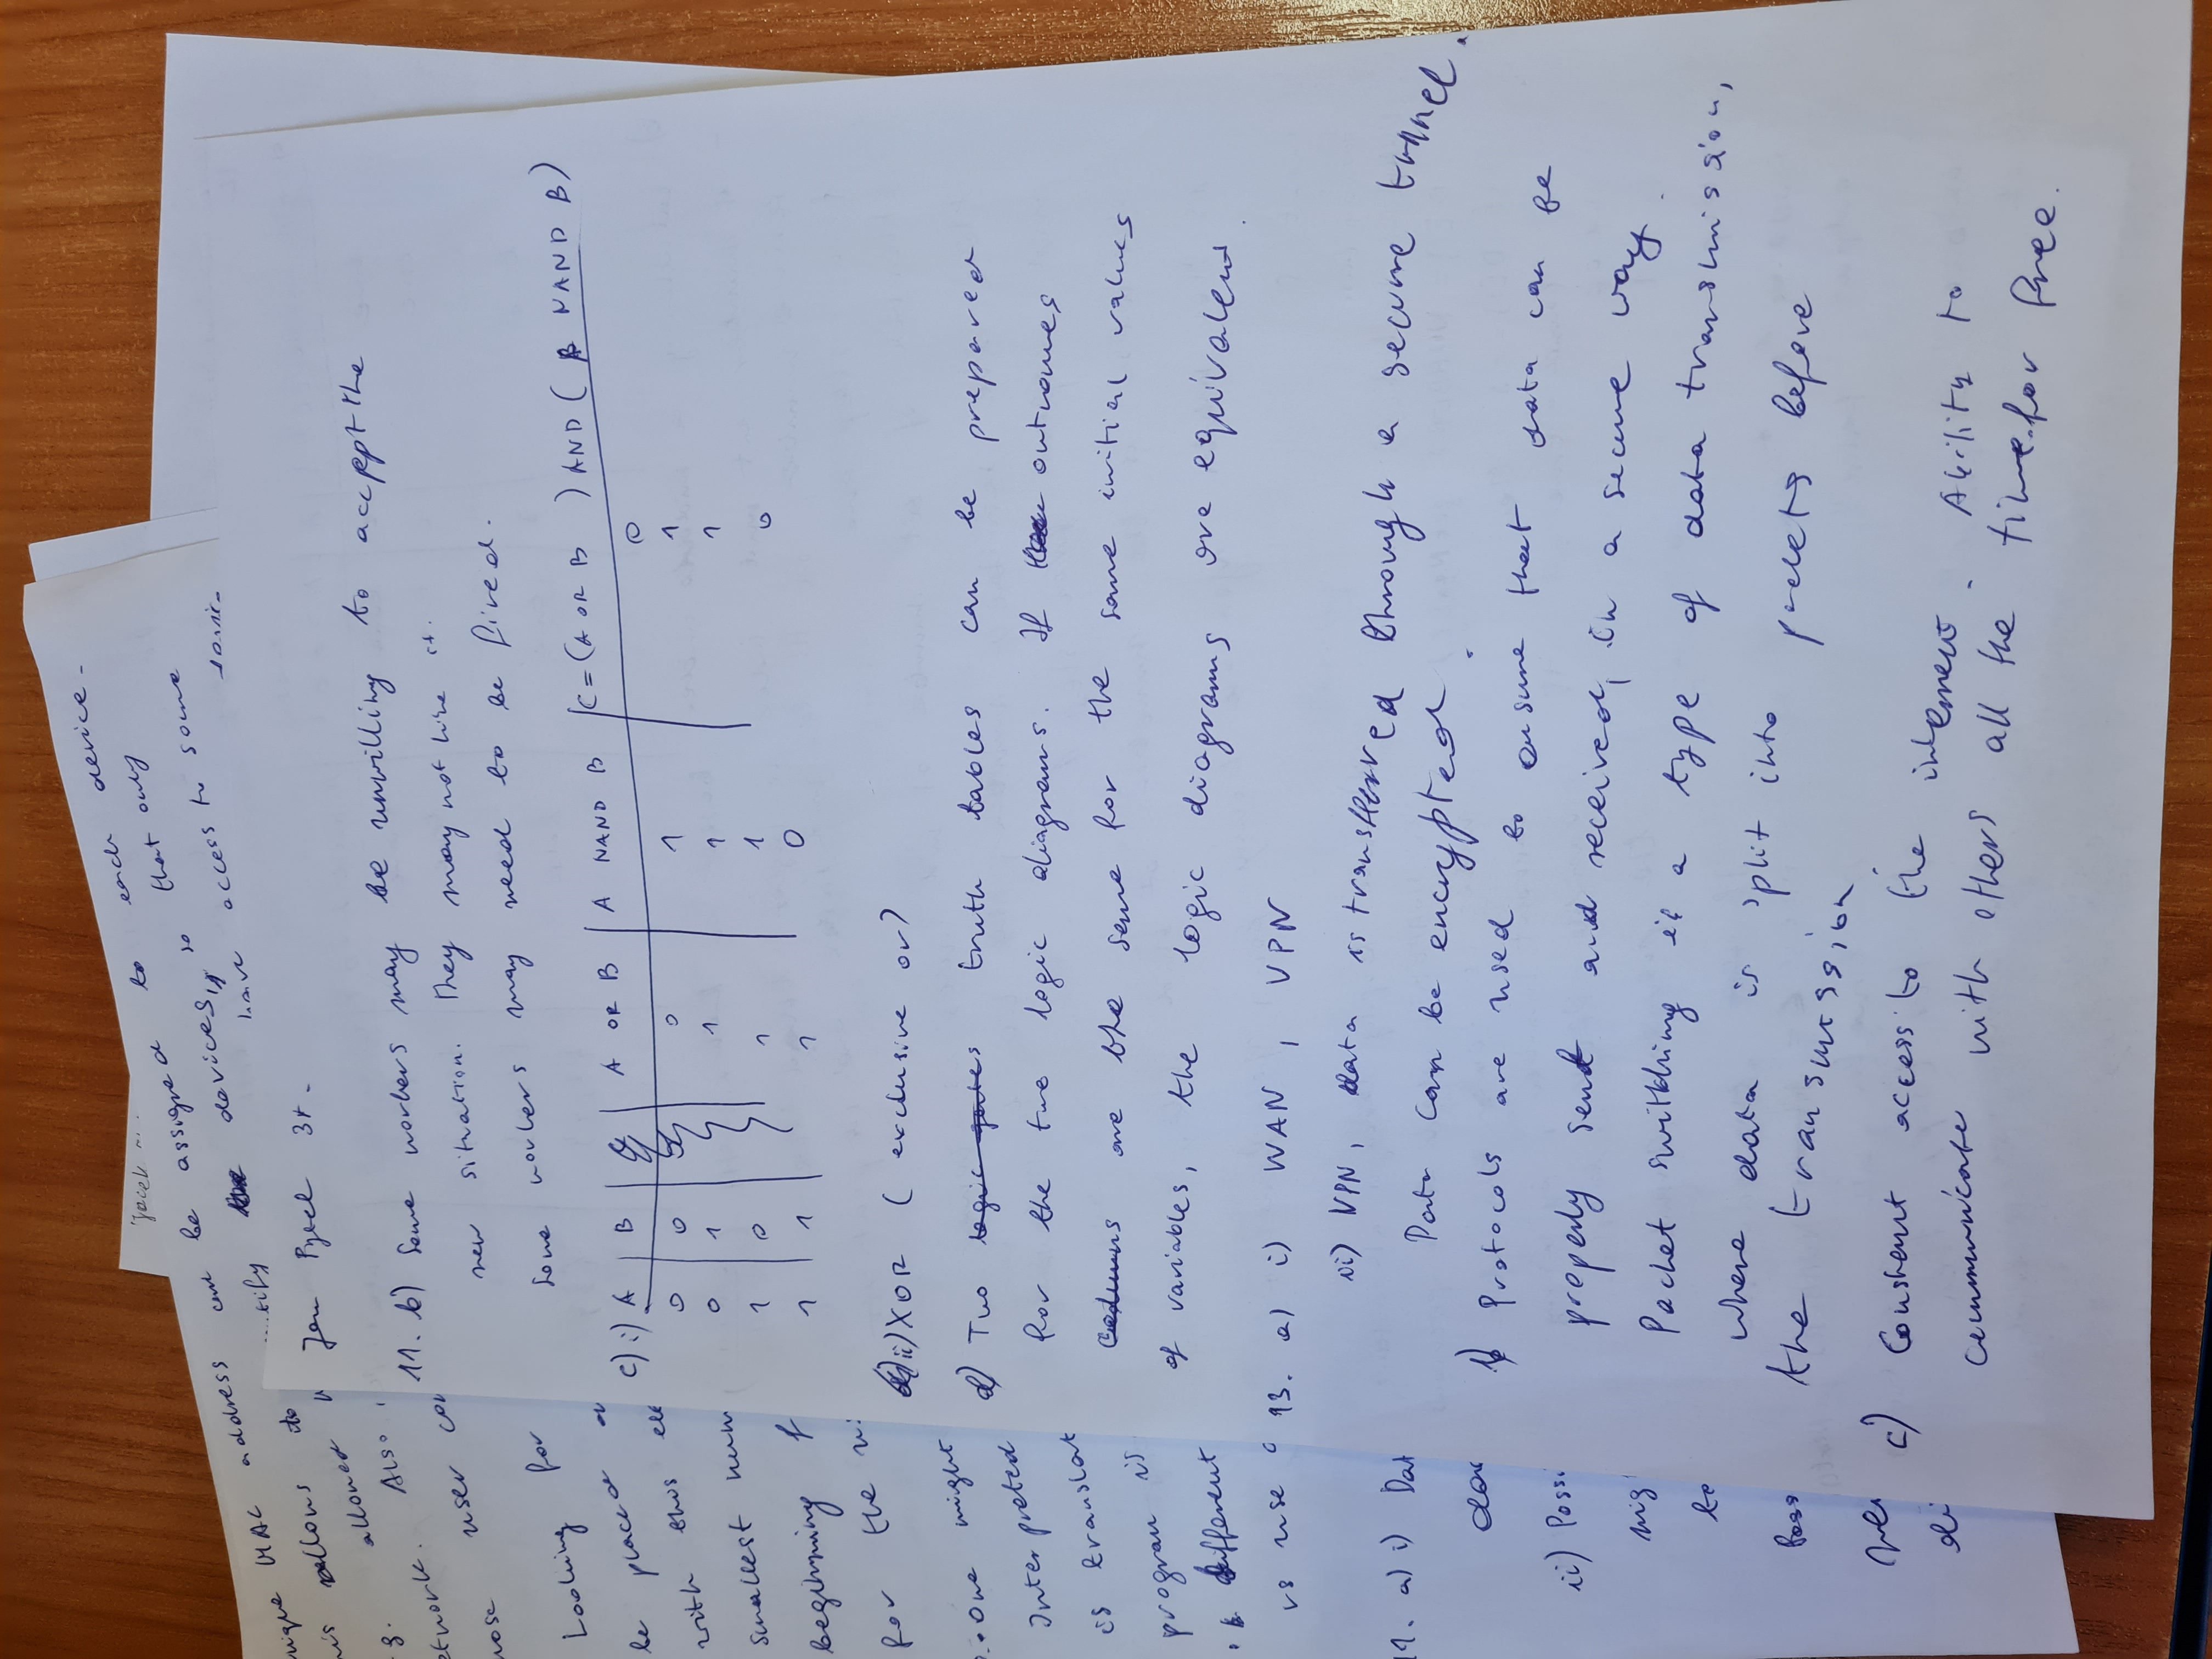 Jacek
unique MAC address can be assigned to each device.
This allows to devices, so that only
e.g. allowed have access to some
network. Also,
whose user
Looking for
be placed
with this
smallest
beginning
for the
One might
Interpreted
is
program is
different
vs use
11. a) i)
ii)
Jan 3t.
11. b) Some workers may be unwilling to accppt the
new situation. They may not like it.
Some workers may need to be fired.
c) i) A B A OR B A NAND B C = (A OR B ) AND ( A NAND B )
0 0 0 1 0
0 1 1 1 1
1 0 1 1 1
1 1 1 0 0
ii) XOR ( exclusive or)
d) Two logic gates truth tables can be prepared
for the two logic diagrams. If outcomes
columns are the same for the same initial values
of variables, the logic diagrams are equivalent.
13. a) i) WAN , VPN
ii) VPN, data is transferred through a secure tunnel.
Data can be encrypted.
b) Protocols are used to ensure that data can be
properly sent and received, in a secure way.
Packet switching is a type of data transmission,
where data is split into packets before
the transmission.
c) Constant access to the internet. Ability to
communicate with others all the time for free.